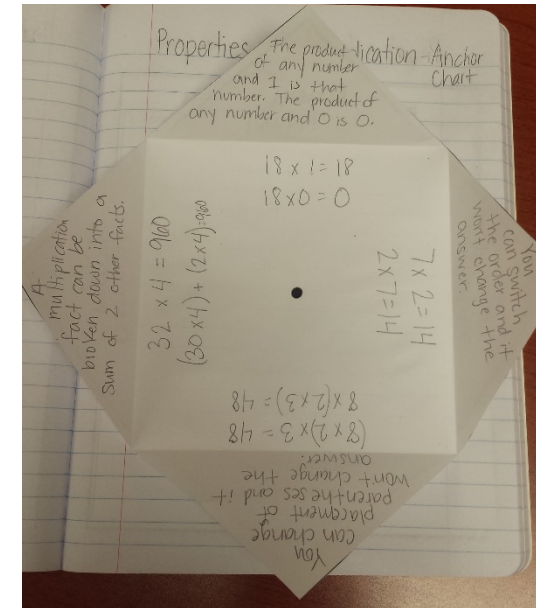 Properties
lication-Anchor
Chart
The product
of any number
and 1 is that
number. The product of
any number and 0 is 0.
18 x 1 = 18
18x0=0
A
multiplication
fact can be
broken down into a
sum of 2 other facts.
32 x 4 = 960
(30x4)+(2x4)=960
You
can switch
the order and it
wont change the
answer.
7x2=14
2x7=14
You
can change
placment of
parentheses and it
wont change the
answer.
(8x2)x3=48
8x(2x3)=48